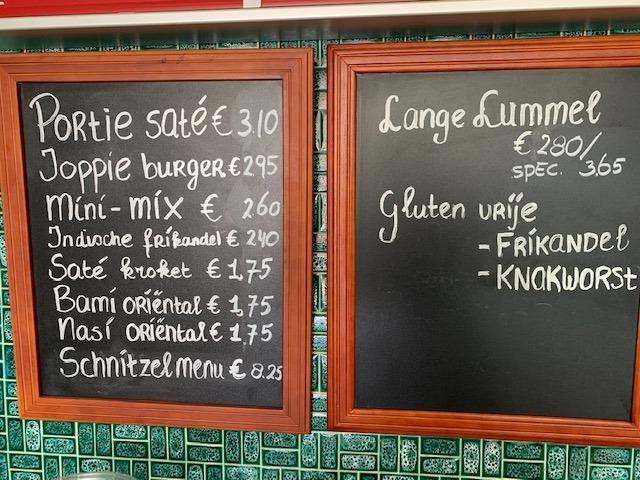 Portie saté € 3.10
Joppie burger € 2.95
Mini-mix € 2.60
Indische frikandel € 2.40
Saté kroket € 1,75
Bami oriëntal € 1,75
Nasi oriëntal € 1,75
Schnitzel menu € 8.25
Lange Lummel
€ 280/
spec. 3.65
Gluten vrije
- Frikandel
- Knakworst